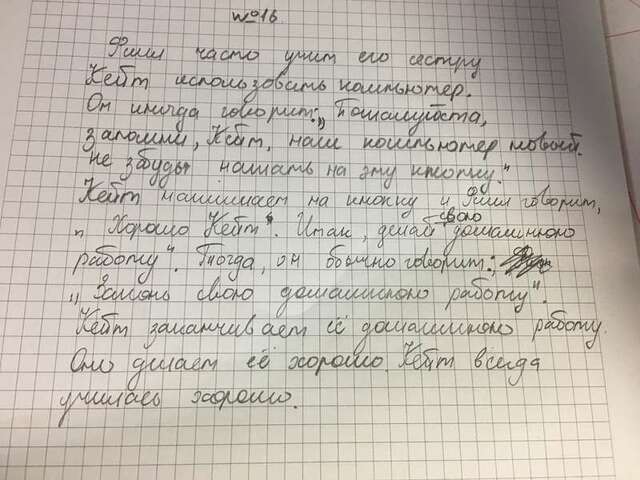 №16
Филл часто учит его сестру
Кейт использовать компьютер.
Он иногда говорит: „Пожалуйста,
запомни, Кейт, наш компьютер новый.
Не забудь нажать на эту кнопку."
Кейт нажимает на кнопку и Филл говорит,
„Хорошо Кейт". Итак, делай свою домашнюю
работу". Тогда, он обычно говорит:
„Закончь свою домашнюю работу".
Кейт заканчивает её домашнюю работу.
Она делает её хорошо. Кейт всегда
училась хорошо.